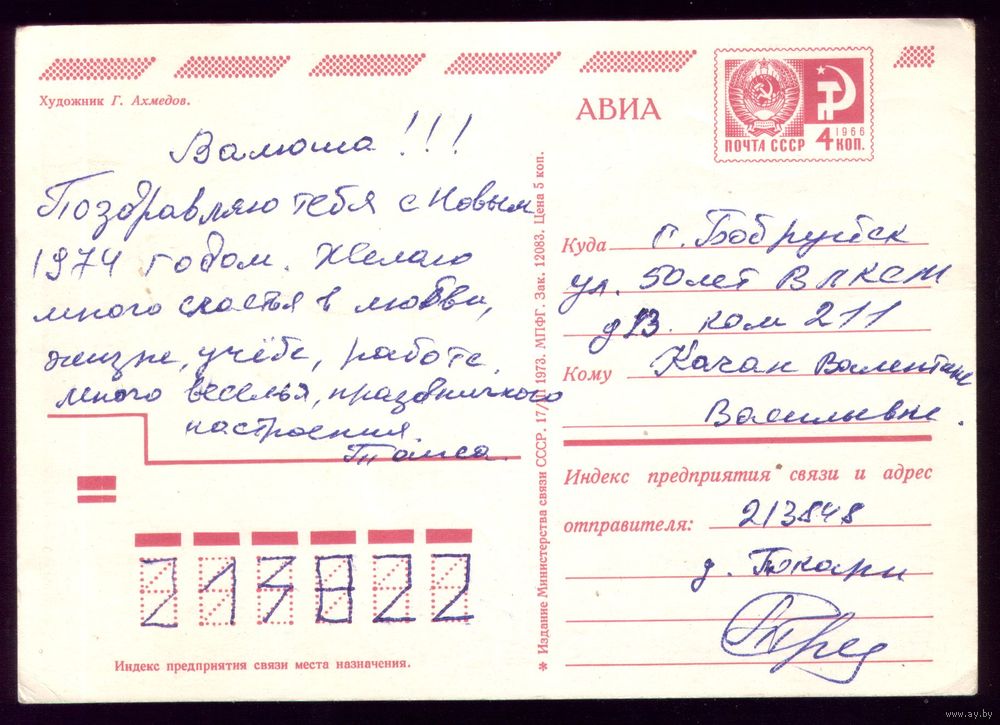 Художник Г. Ахмедов.
Валюша!!!
Поздравляю тебя с Новым
1974 годом. Желаю
много счастья в любви,
жизни, учёбе, работе,
много веселья, праздничного
настроения.
Таиса.
213822
Индекс предприятия связи места назначения.
* Издание Министерства связи СССР. 17/III 1973. МПФГ. Зак. 12083. Цена 5 коп.
АВИА
ПОЧТА СССР 4 КОП.
1966
Куда г. Бобруйск
ул. 50 лет ВЛКСМ
д 13. ком 211
Кому Качан Валентине
Васильевне.
Индекс предприятия связи и адрес
отправителя: 213848
д. Токари
www.ay.by